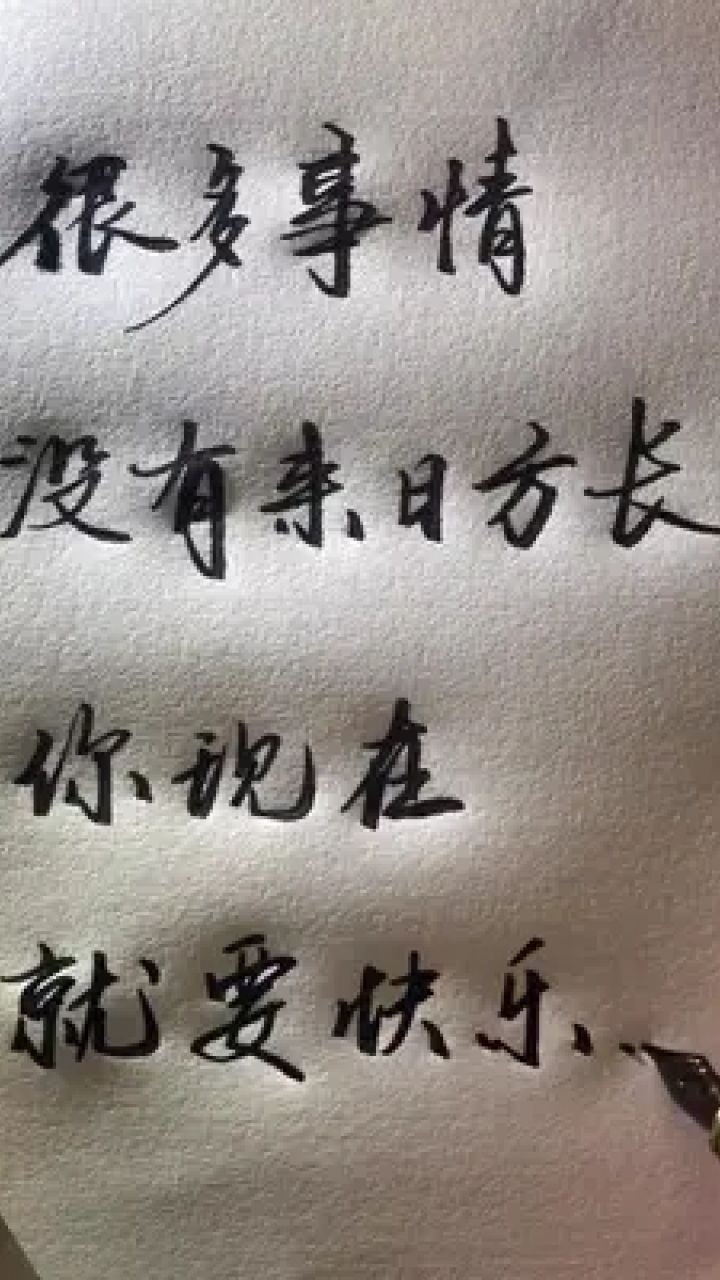 很多事情
没有来日方长
你现在
就要快乐..